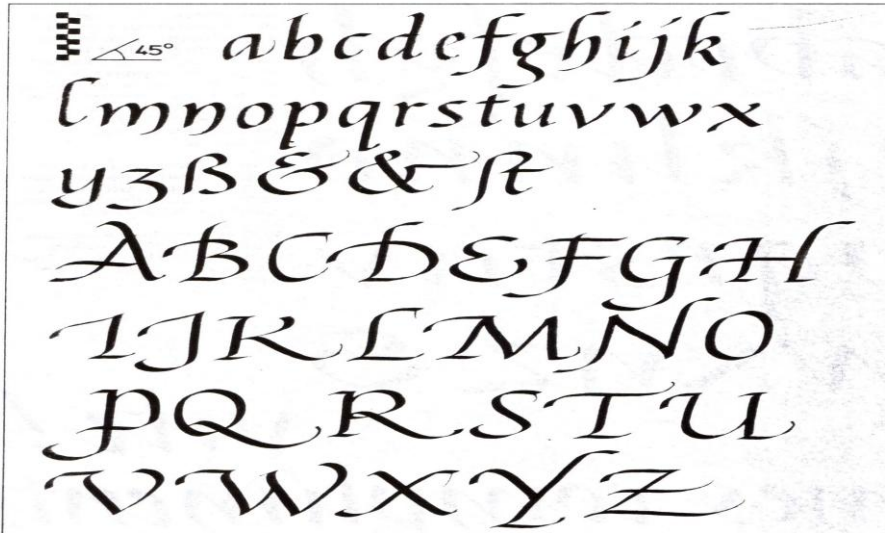 45° abcdefghijk
lmnopqrstuvwx
yzß&&ſt
ABCDEFGH
IJKLMNO
PQRSTU
VWXYZ